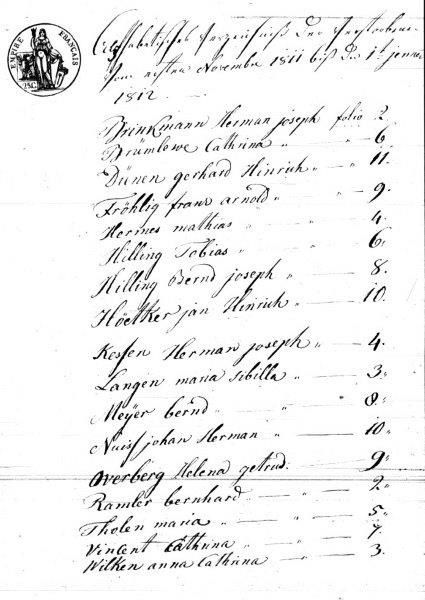 EMPIRE FRANÇAIS
25C.
Alphabetisches Verzeichniß der Verstorbenen
vom ersten November 1811 biß den 1ten januar
1812
Brinkmann Herman joseph folio 2
Brümlewe Cathrina " — " — 6
Dünen gerhard Hinrich " — " — 11
Fröhlig franz arnold " " — 9
Hermes mathias " " — 4
Hilling Tobias " " — 6
Hilling Bernd joseph " — 8
Höelker jan Hinrich " — 10
Kessen Herman joseph " — 4
Langen maria sibilla " — 3
Meÿer bernd " " 8
Nuiss johan Herman " — 10
Overberg Helena getrud — 9
Ramler bernhard " — " — 2
Tholen maria " — " — 5
Vincent Cathrina " — " — 7
Wilken anna Cathrina " — 3